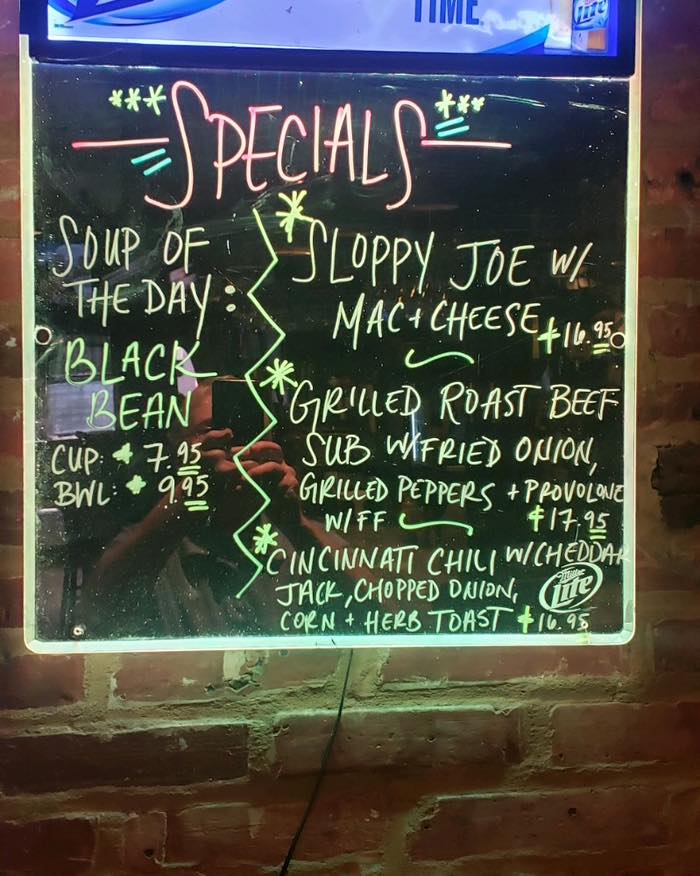 TIME
Lite
*** SPECIALS ***
SOUP OF
THE DAY:
BLACK
BEAN
CUP: $ 7.95
BWL: $ 9.95
* SLOPPY JOE W/
MAC + CHEESE $16.95
* GRILLED ROAST BEEF
SUB W/FRIED ONION,
GRILLED PEPPERS + PROVOLONE
W/FF $17.95
* CINCINNATI CHILI W/CHEDDAR
JACK, CHOPPED ONION,
CORN + HERB TOAST $16.95
Miller
Lite